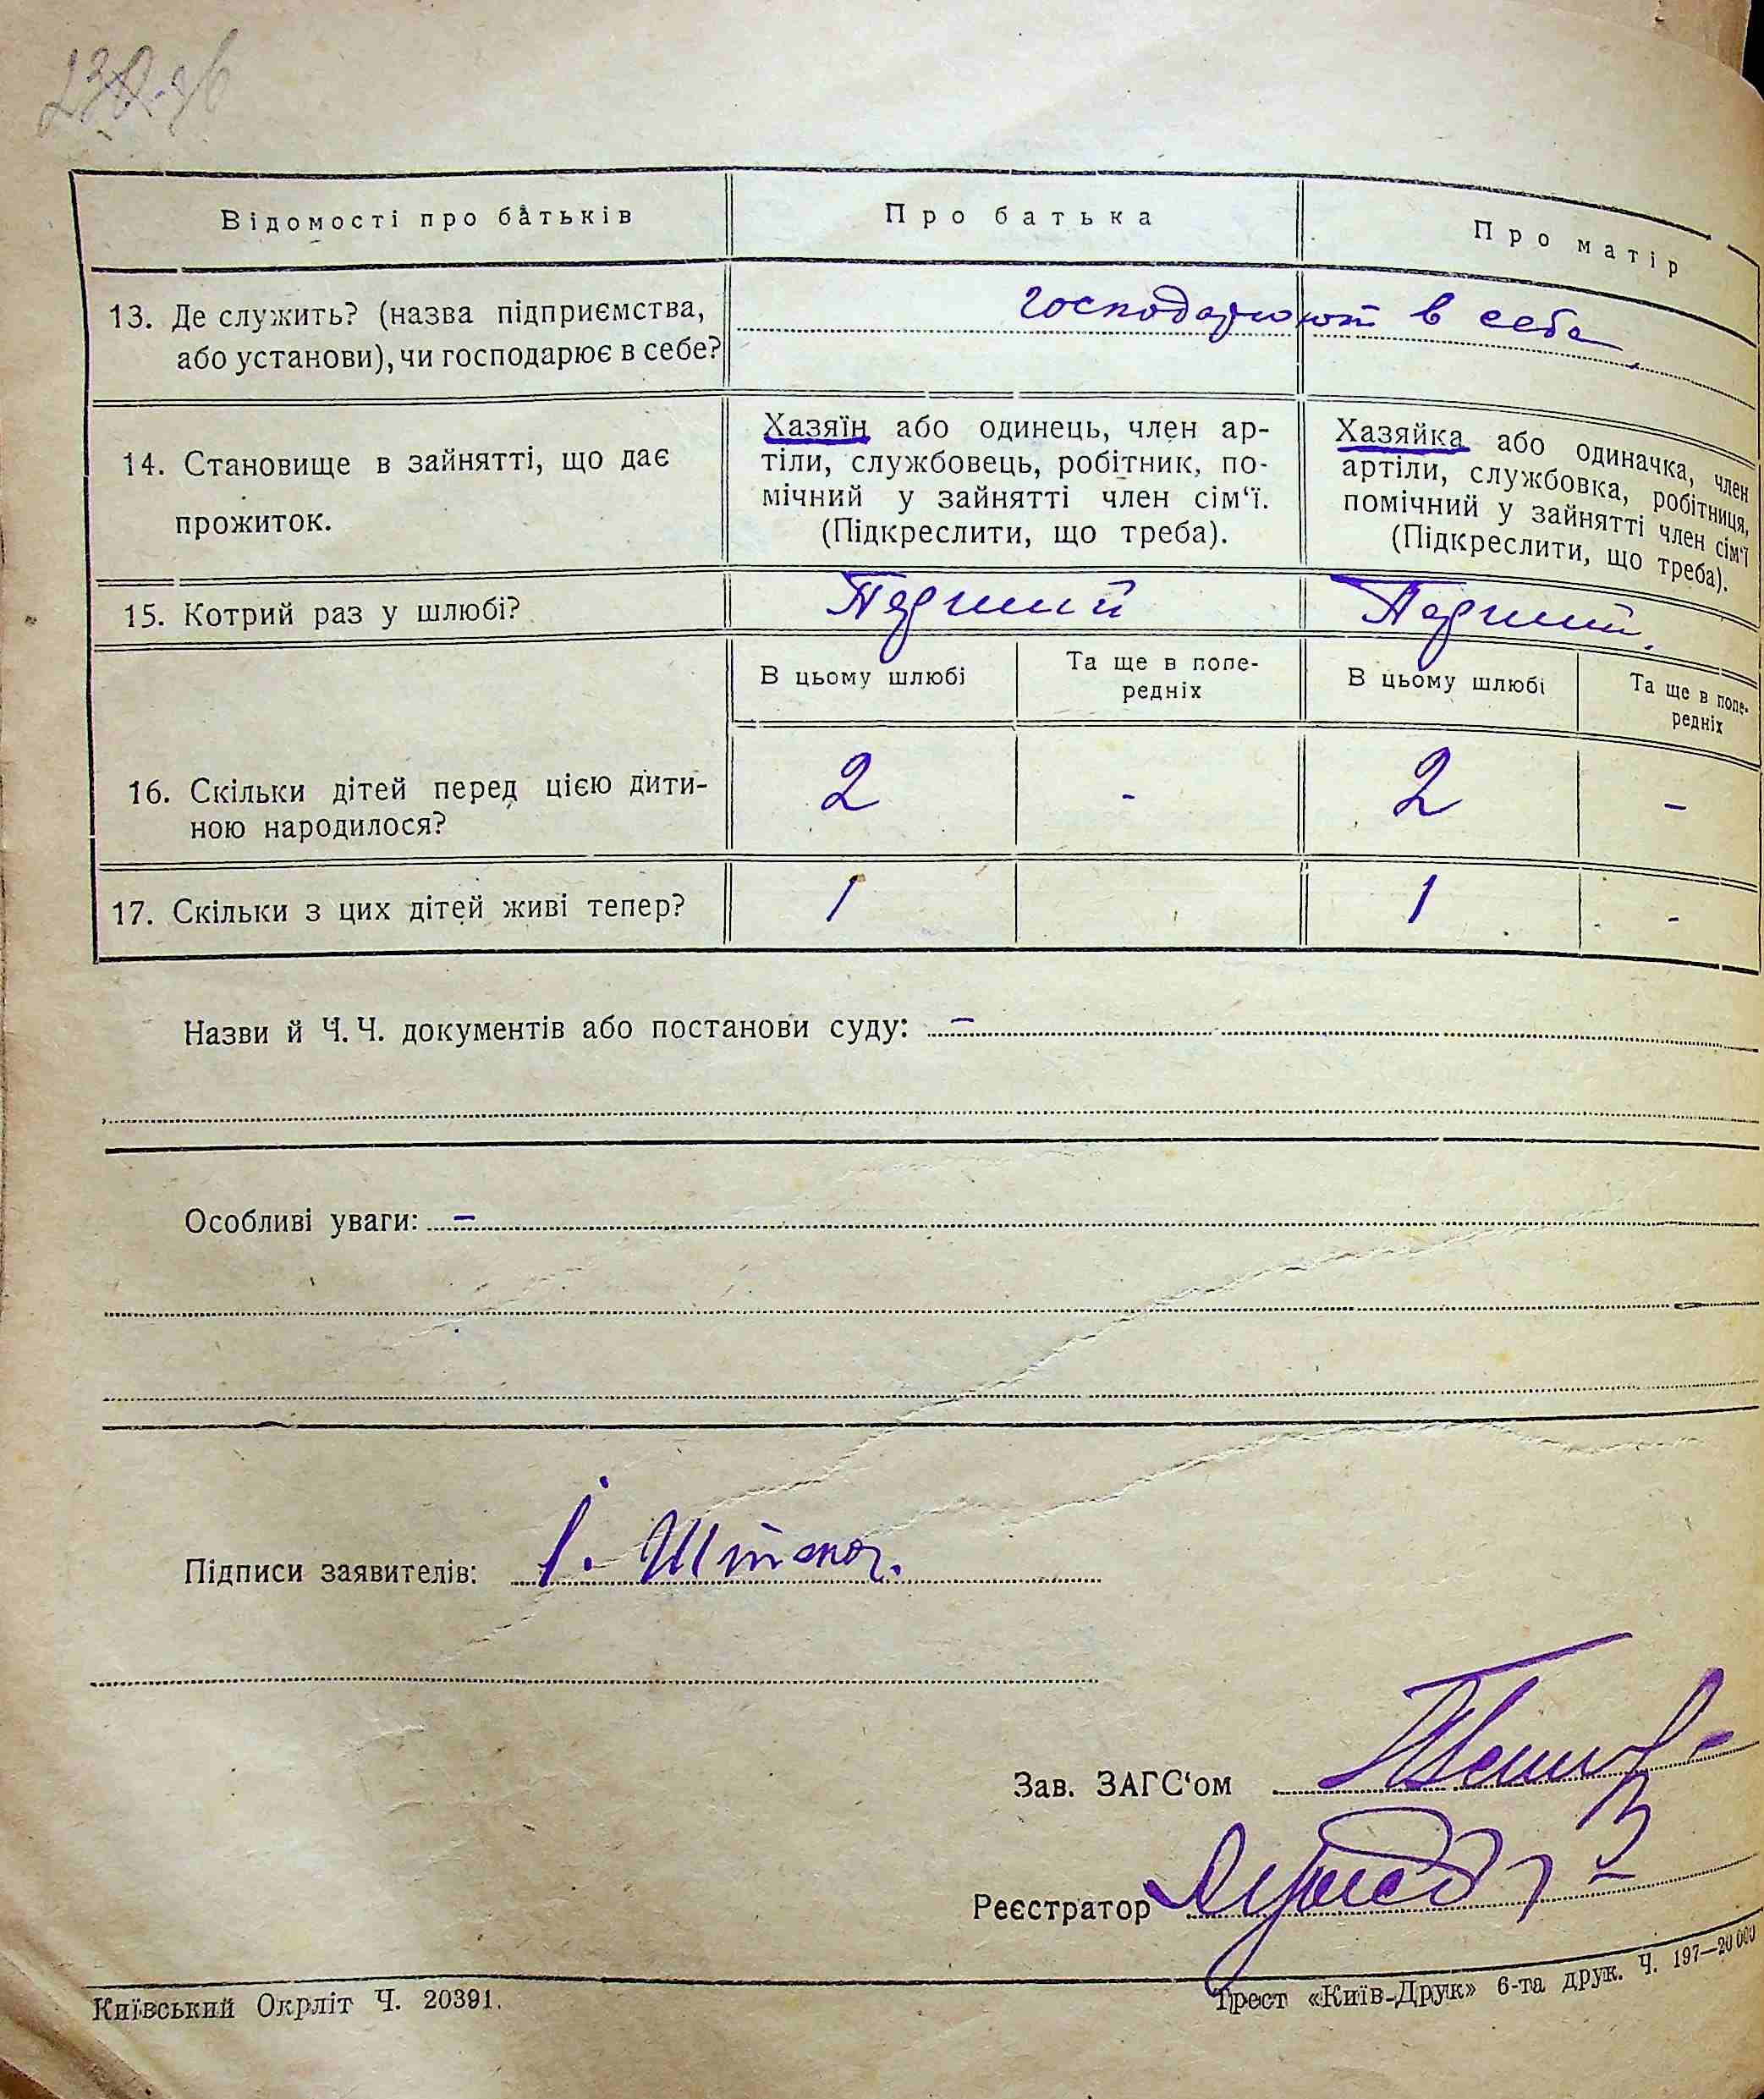 Відомості про батьків Про батька Про матір
13. Де служить? (назва підприємства, або установи), чи господарює в себе?
господарюют в себе
14. Становище в зайнятті, що дає прожиток.
Хазяїн або одинець, член ар-
тіли, службовець, робітник, по-
мічний у зайнятті член сім‘ї.
(Підкреслити, що треба).
Хазяйка або одиначка, член
артіли, службовка, робітниця,
помічний у зайнятті член сім‘ї
(Підкреслити, що треба).
15. Котрий раз у шлюбі? Перший Перший
В цьому шлюбі Та ще в попе-
редніх
В цьому шлюбі Та ще в попе-
редніх
16. Скільки дітей перед цією дити-
ною народилося?
2 - 2 -
17. Скільки з цих дітей живі тепер? 1 1 -
Назви й Ч. Ч. документів або постанови суду: –
Особливі уваги: –
Підписи заявителів: І.
Зав. ЗАГС‘ом
Реєстратор
Київський Окрліт Ч. 20391.
Трест «Київ-Друк» 6-та друк. Ч. 197—20 000